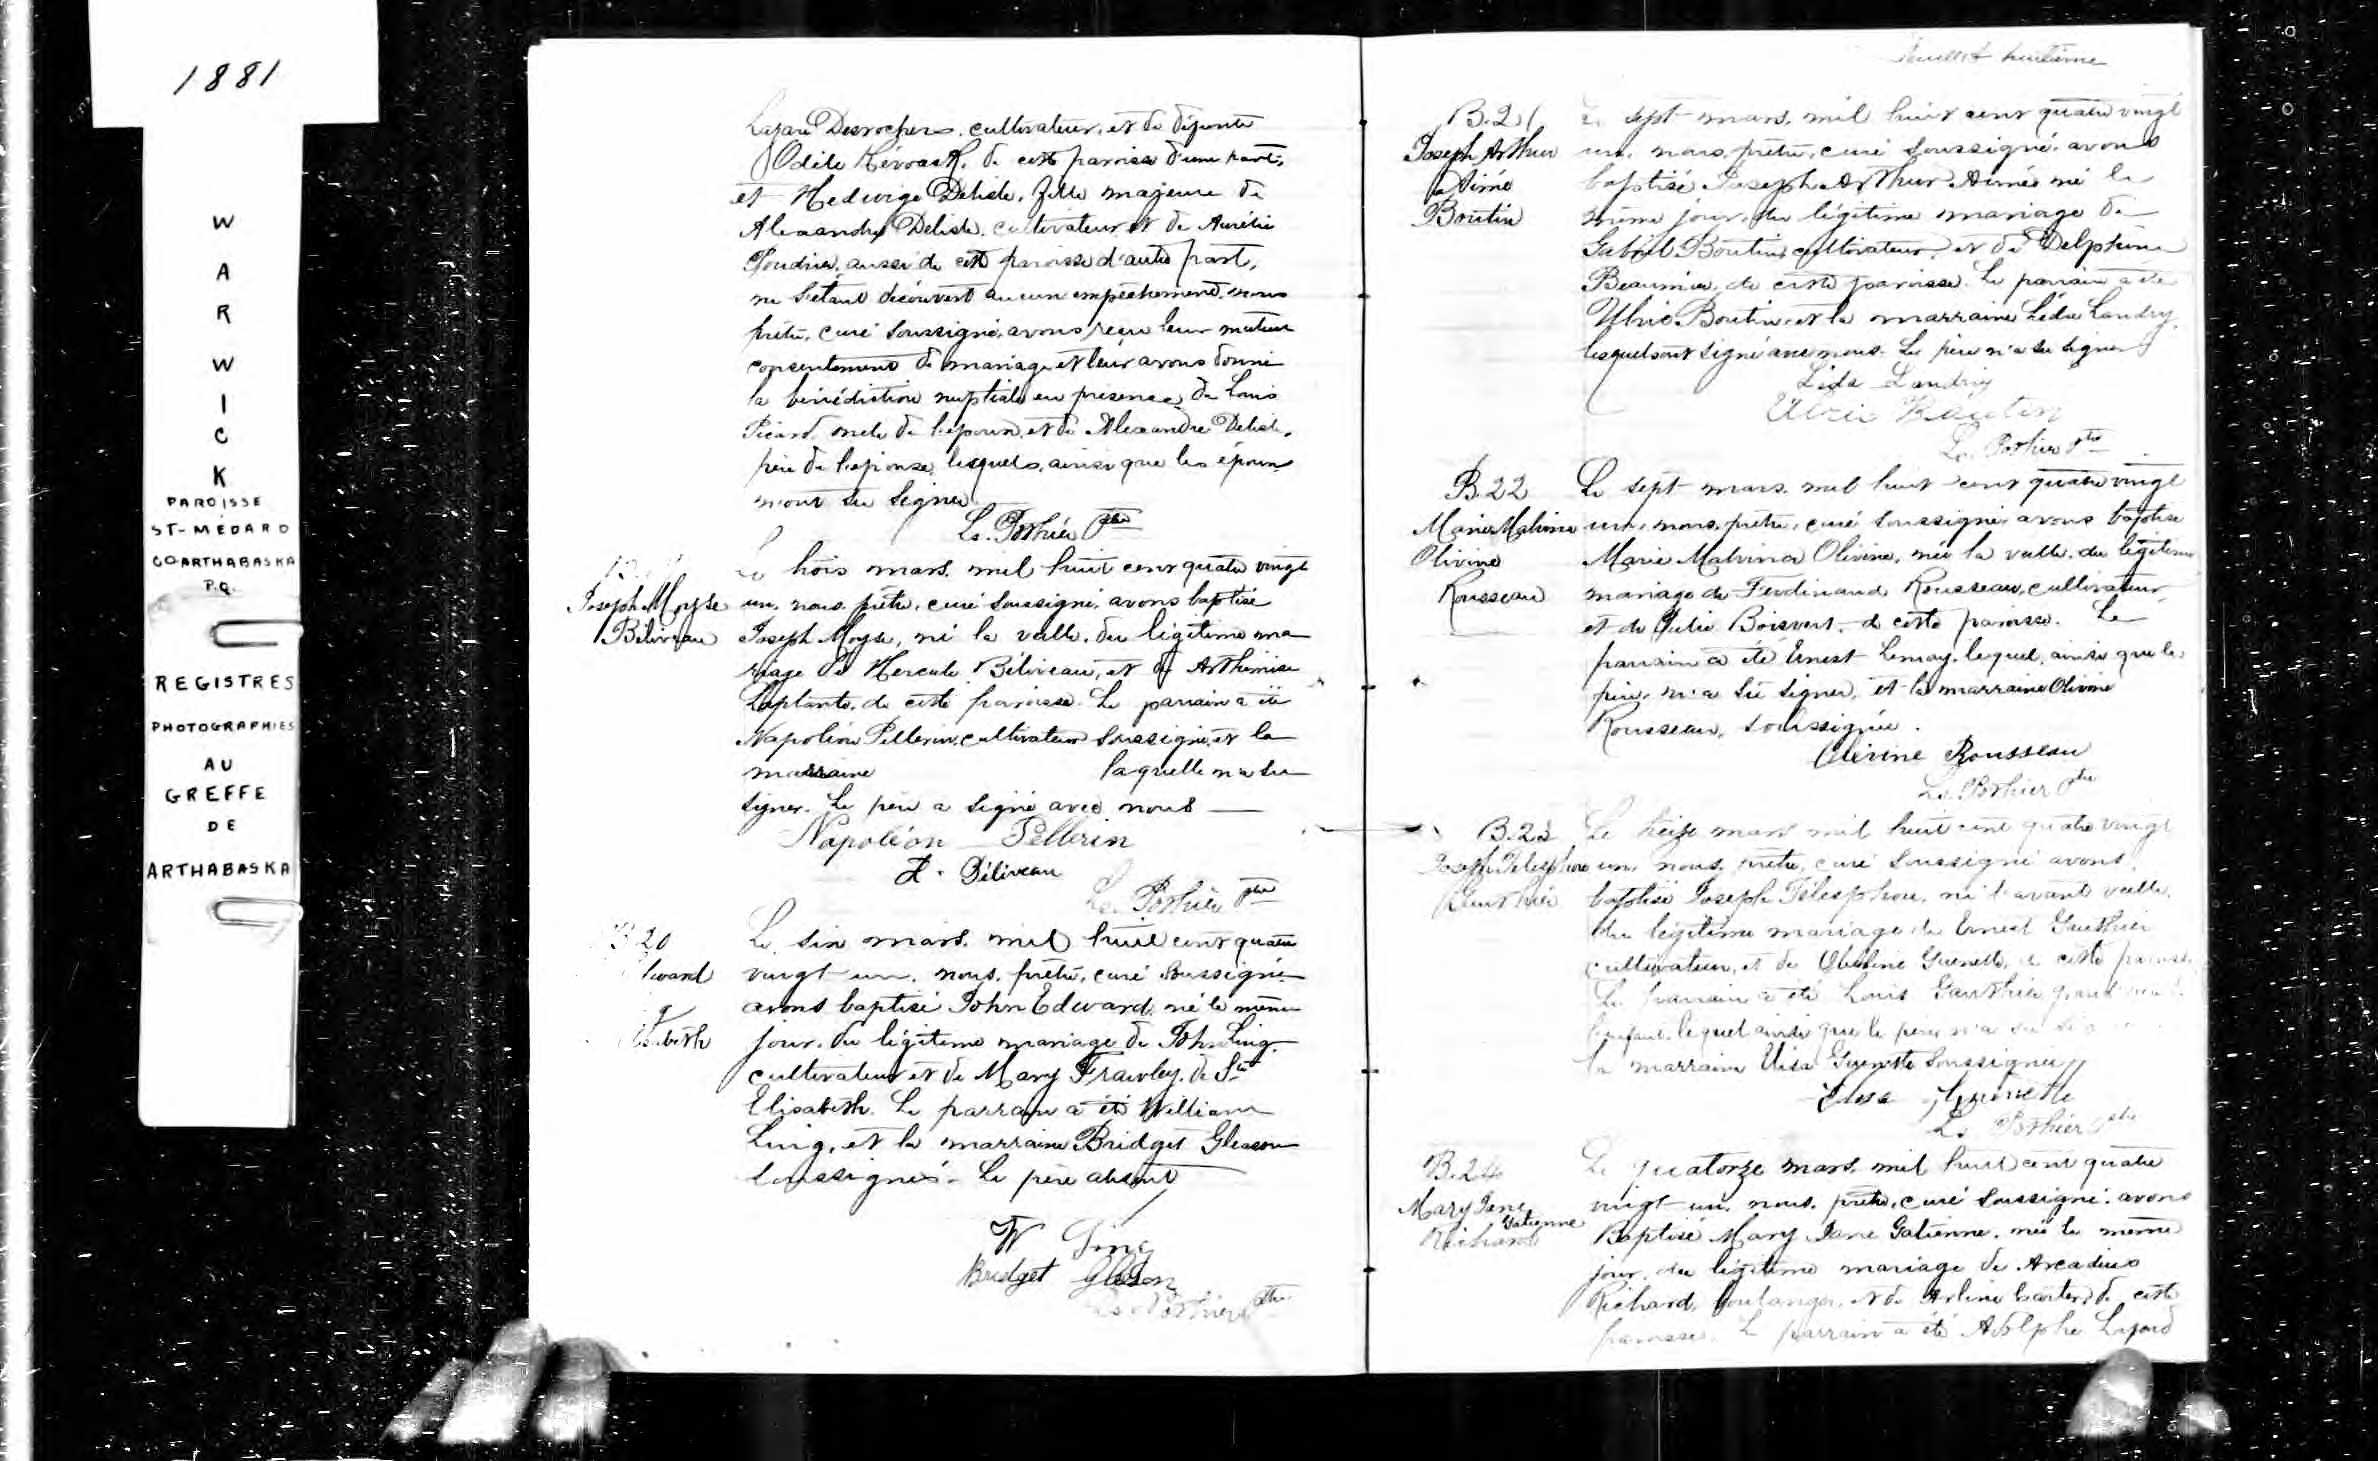 1881
WARWICK
PAROISSE
ST-MÉDARD
CO. ARTHABASKA
P.Q.
REGISTRES
PHOTOGRAPHIES
AU
GREFFE
DE
ARTHABASKA
Lazare Desrochers, cultivateur, et de défunte
Odile de cette paroisse d'une part,
et Hedwige Delisle, fille majeure de
Alexandre Delisle, cultivateur et de Aurélie
Poudrier, aussi de cette paroisse d'autre part,
ne s'étant découvert aucun empêchement, nous
prêtre, curé soussigné, avons reçu leur mutuel
consentement de mariage et leur avons donné
la bénédiction nuptiale en présence de Louis
Picard, oncle de l'époux, et de Alexandre Delisle,
père de l'épouse, lesquels, ainsi que les époux
n'ont su signer.
Ls. Pothier Ptre
Joseph Moyse
Béliveau
Le trois mars, mil huit cent quatre vingt
un, nous, prêtre, curé soussigné, avons baptisé
Joseph Moyse, né la veille, du légitime ma
riage de Hercule Béliveau, et de Arthémise
Laplante, de cette paroisse. Le parrain a été
Napoléon Pellerin, cultivateur soussigné, et la
marraine laquelle n'a su
signer. Le père a signé avec nous
Napoléon Pellerin
H. Béliveau
Ls. Pothier Ptre
B 20
dward
g
Elisabeth
Le six mars, mil huit cent quatre
vingt-un, nous, prêtre, curé soussigné
avons baptisé John Edward, né le même
jour, du légitime mariage de John Ling,
cultivateur et de Mary Frawley, de Ste
Elisabeth. Le parrain a été William
Ling, et la marraine Bridget Gleason
soussignés. Le père absent
W Ling
Bridget Gleson
Ls Pothier Ptre
Feuillet huitième
B.21
Joseph Arthur
Aimé
Boutin
Le sept mars, mil huit cent quatre vingt
un, nous, prêtre, curé soussigné, avons
baptisé Joseph Arthur Aimé né le
même jour, du légitime mariage de
Gabriel Boutin, cultivateur, et de Delphine
Beaumier, de cette paroisse. Le parrain a été
Ulric Boutin, et la marraine Léda Landry,
lesquels ont signé avec nous. Le père n'a su signer
Léda Landry
Ulric Boutin
Ls. Pothier Ptre
B.22
Marie Malvina
Olivine
Rousseau
Le sept mars, mil huit cent quatre vingt
un, nous, prêtre, curé soussigné, avons baptisé
Marie Malvina Olivine, née la veille, du légitime
mariage de Ferdinand Rousseau, cultivateur,
et de Julie Boisvert, de cette paroisse. Le
parrain a été Ernest Lemay, lequel, ainsi que le
père, n'a su signer, et la marraine Olivine
Rousseau, soussignée.
Olivine Rousseau
Ls. Pothier Ptre
B.23
Joseph Télesphore
Gauthier
Le treize mars mil huit cent quatre vingt
un, nous, prêtre, curé soussigné avons
baptisé Joseph Télesphore, né l'avant veille,
du légitime mariage de Ernest Gauthier
cultivateur, et de Guenette, de cette paroisse.
Le parrain a été Louis Gauthier grand
l'enfant, lequel ainsi que le père n'a su
la marraine Elisa Guenette soussignée
Elisa Guenette
Ls Pothier Ptre
B.24
Mary Jane
Gatienne
Richard
Le quatorze mars, mil huit cent quatre
vingt-un, nous, prêtre, curé soussigné, avons
Baptisé Mary Jane Gatienne, née le même
jour, du légitime mariage de Arcadius
Richard, boulanger, et de de cette
paroisse. Le parrain a été Adolphe